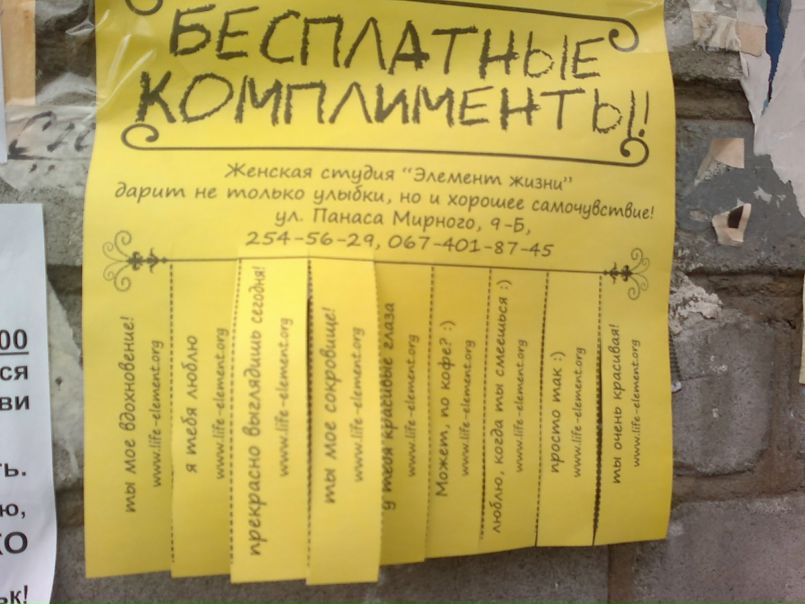 БЕСПЛАТНЫЕ
КОМПЛИМЕНТЫ!
Женская студия "Элемент жизни"
дарит не только улыбки, но и хорошее самочувствие!
ул. Панаса Мирного, 9-Б,
254-56-29, 067-401-87-45
ты мое вдохновение!
www.life-element.org
я тебя люблю
www.life-element.org
прекрасно выглядишь сегодня!
www.life-element.org
ты мое сокровище!
www.life-element.org
у тебя красивые глаза
www.life-element.org
Может, по кофе? :)
www.life-element.org
люблю, когда ты смеешься :)
www.life-element.org
просто так :)
www.life-element.org
ты очень красивая!
www.life-element.org
00
ся
ви
ть.
ю,
КО
ьк!